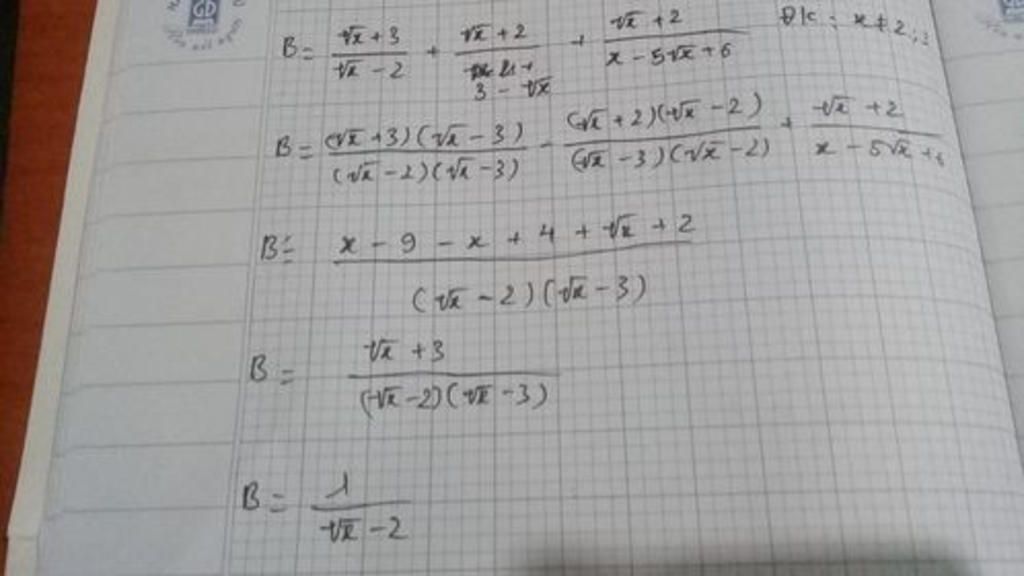 B = (√x + 3)/(√x - 2) + (√x + 2)/(3 - √x) + (√x + 2)/(x - 5√x + 6) ĐK: x ≠ 2; 3
B = (√x + 3)(√x - 3)/(√x - 2)(√x - 3) - (√x + 2)(√x - 2)/(√x - 3)(√x - 2) + (√x + 2)/(x - 5√x + 6)
B = (x - 9 - x + 4 + √x + 2)/(√x - 2)(√x - 3)
B = (√x + 3)/(√x - 2)(√x - 3)
B = 1/(√x - 2)